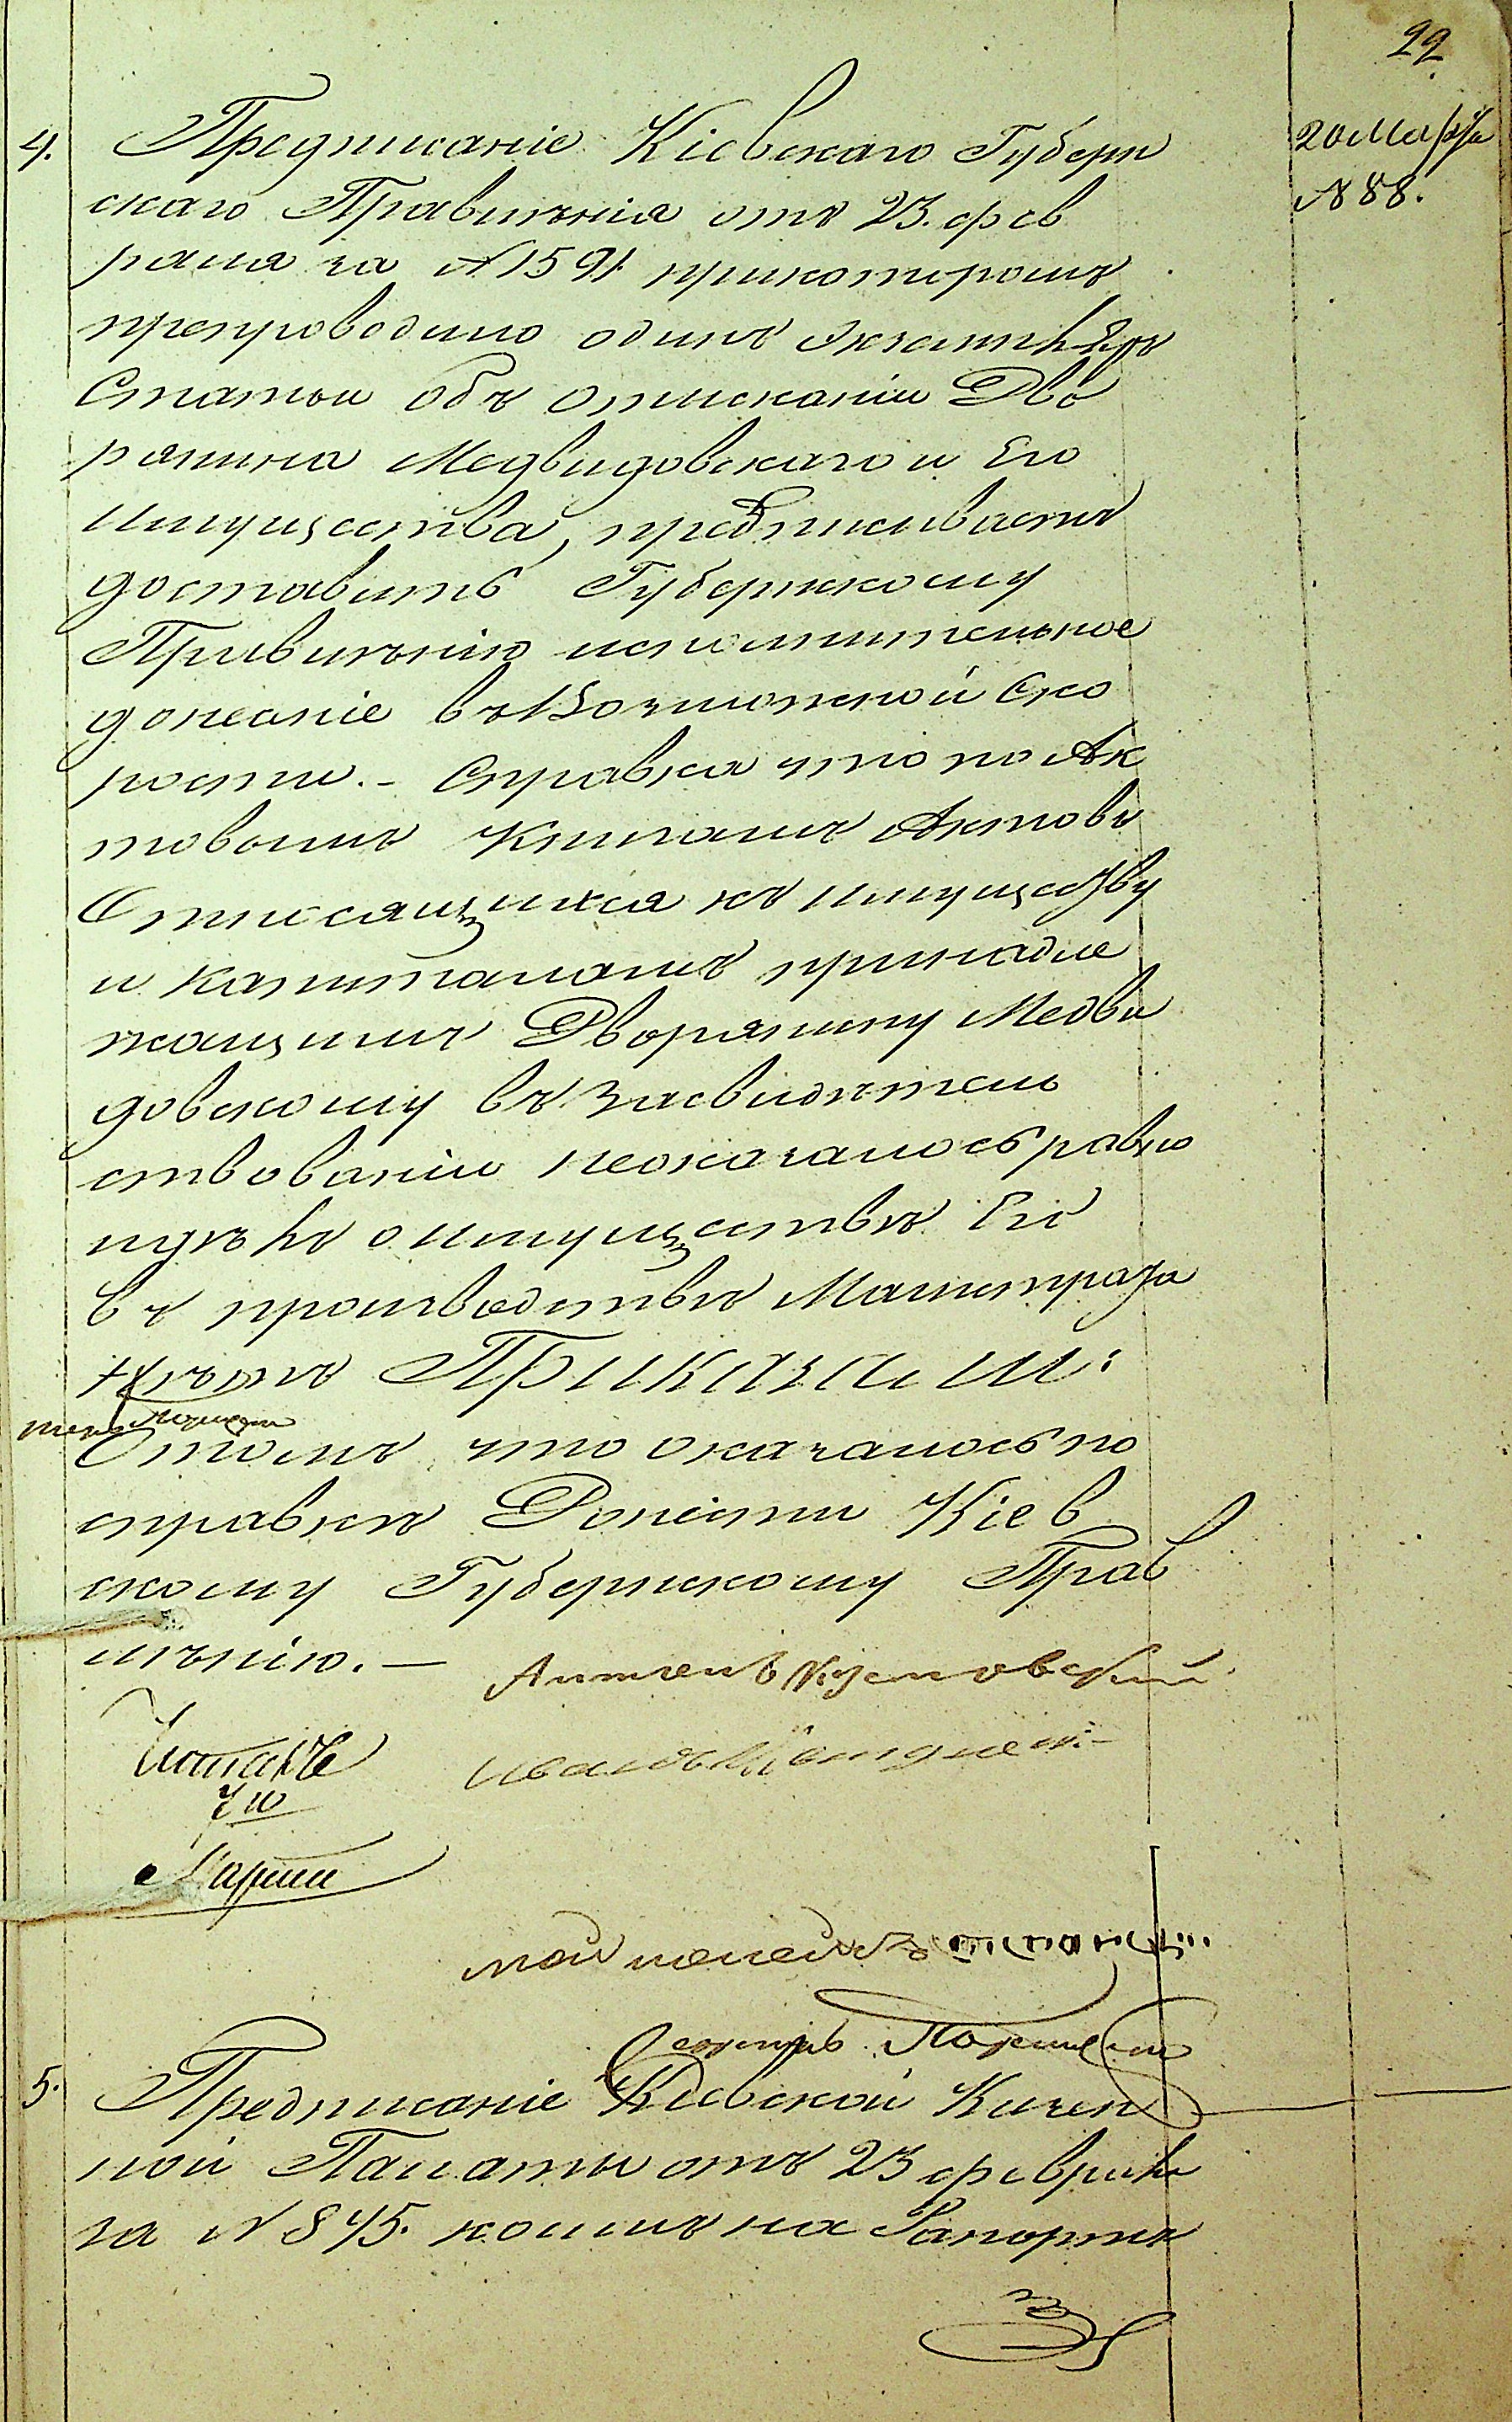 22
20 Марта
№ 88.
4. Предписаніе Кіевскаго Губерн
скаго Правленія отъ 23. фев
раля за № 1591 прикоторомъ
препроводило одинъ экземпляръ
Статьи объ отысканіи Дво
рянина Медвидовскаго и Его
имущества, предписываетъ
доставить Губернскому
Правленію исполнительное
донесеніе въ Возможной Ско
рости. - Справка что по Ак
товымъ Книгамъ Актовъ
Относящихся къ имуществу
и капиталамъ принадле
жащимъ Дворянину Медви
довскому въ засвидѣтель
ствованіи неоказалось равно
и дѣлъ о имуществѣ Его
въ производствѣ Магистрата
нѣтъ Приказали:
О томъ что оказалось по
справкѣ Донести Кіев
скому Губернскому Прав
ленію. —
Антонъ
Читалъ
Иванъ
7 го
Марта
Секретарь
5. Предписаніе Кіевской Казен
ной Палаты отъ 23 февраля
за № 845. коимъ на Рапортъ